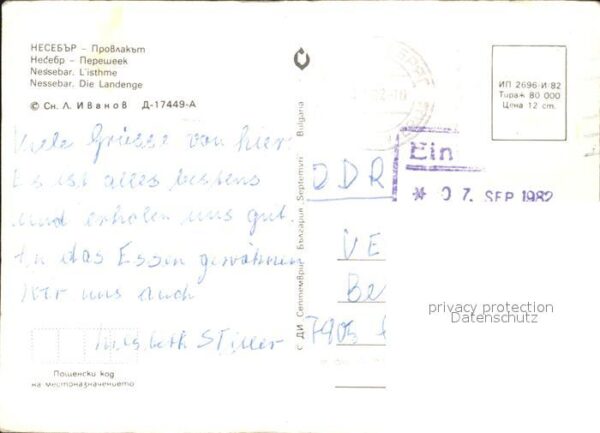 НЕСЕБЪР – Провлакът
Несебр – Перешеек
Nessebar. L'isthme
Nessebar. Die Landenge
© Сн. Л. Иванов Д-17449-А
ИП 2696-И-82
Тираж 80 000
Цена 12 ст.
Viele Grüsse von hier.
Es ist alles bestens
und erholen uns gut.
An das Essen gewöhnen
wir uns auch
Stiller
© ДИ Септември България Septemvri Bulgaria
Ein
* 07. SEP 1982
DDR
VE
Be
7905
privacy protection
Datenschutz
Пощенски код
на местоназначението